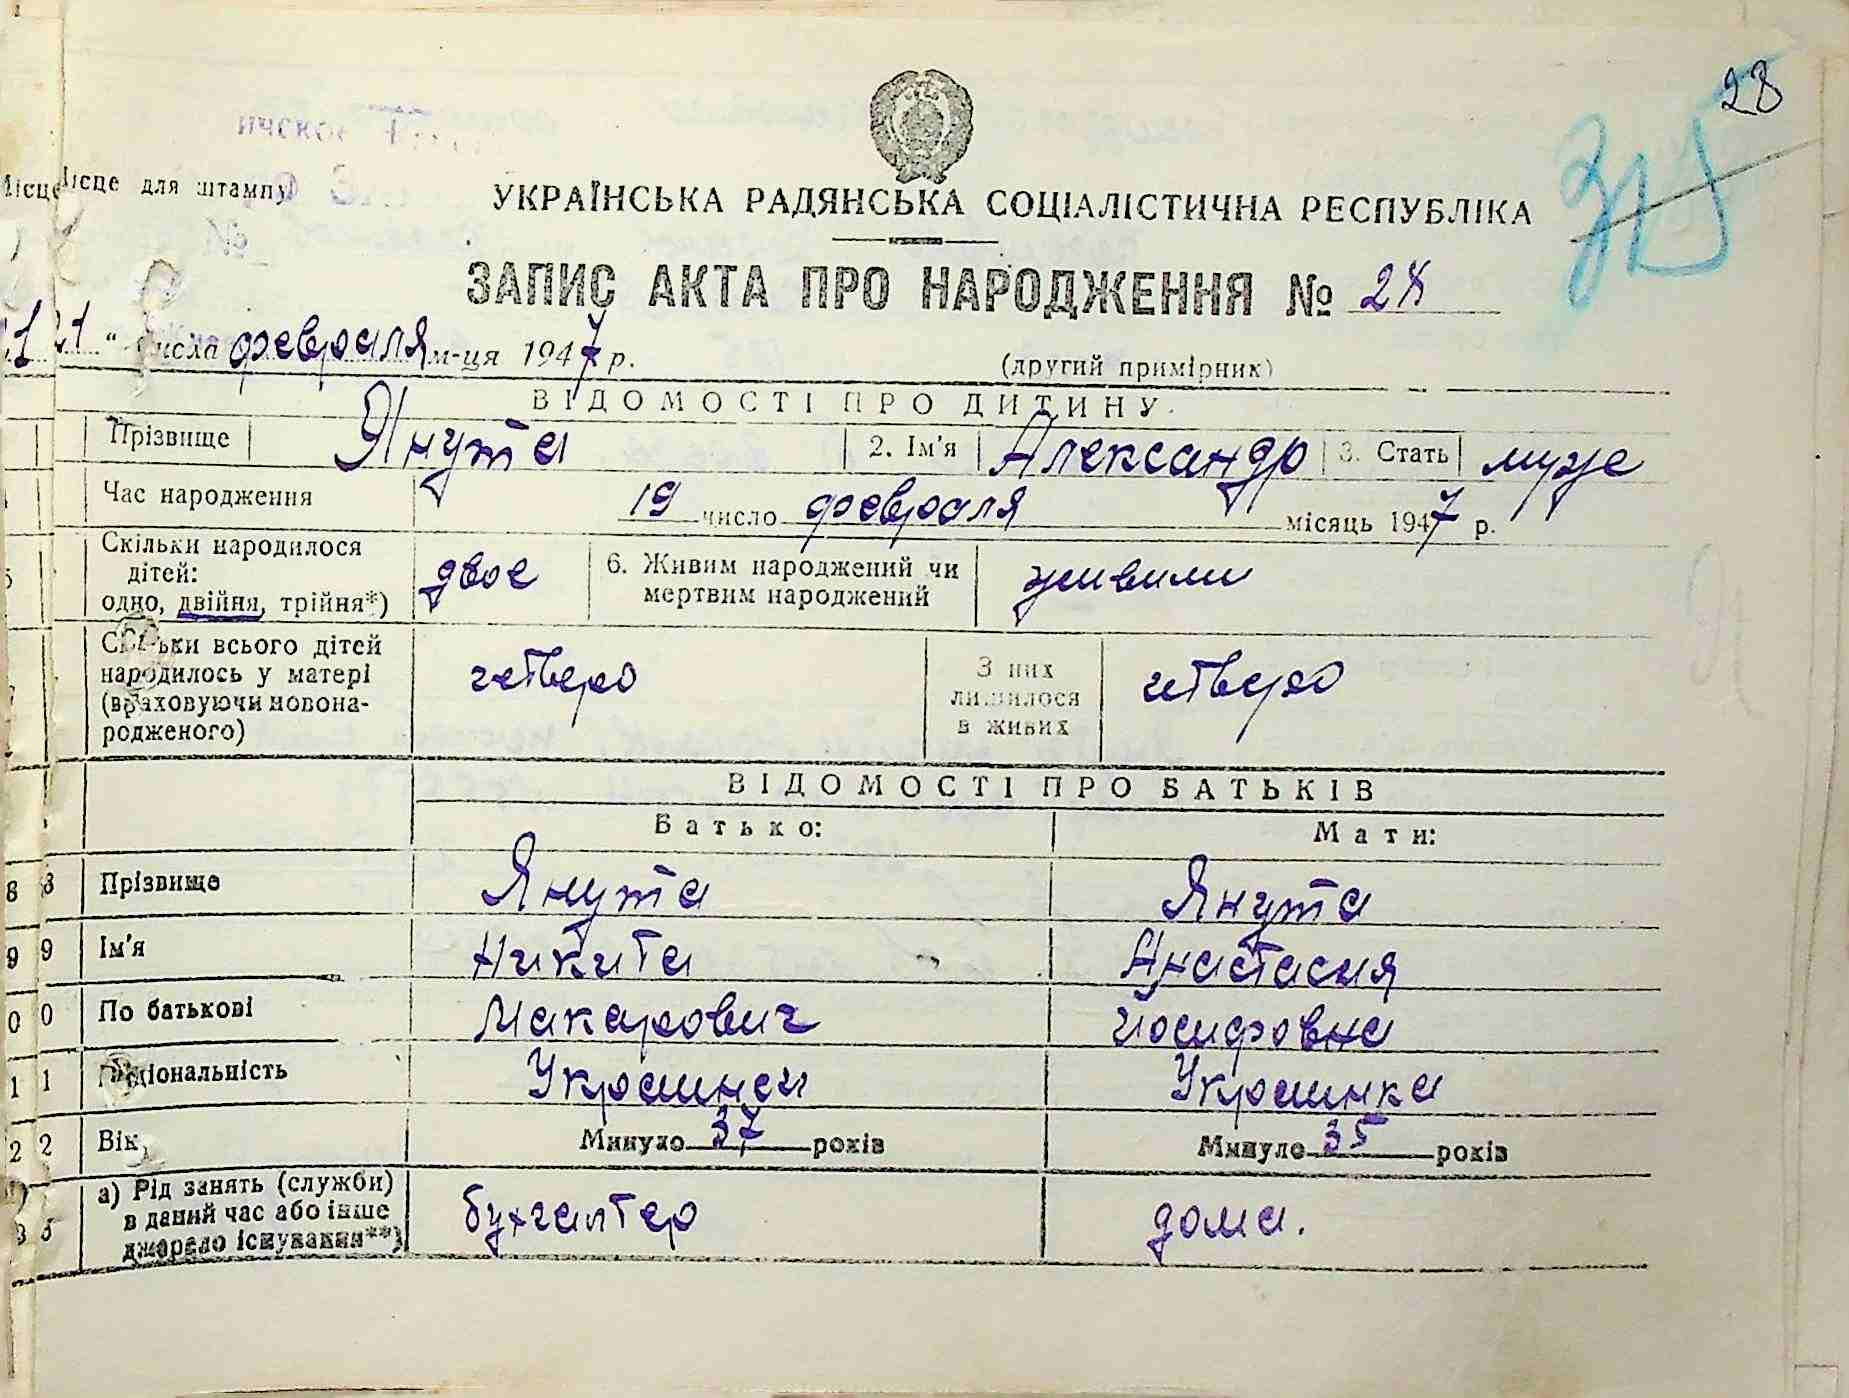 28
315
Місце для штампу
УКРАЇНСЬКА РАДЯНСЬКА СОЦІАЛІСТИЧНА РЕСПУБЛІКА
ЗАПИС АКТА ПРО НАРОДЖЕННЯ № 28
21 " числа февраля м-ця 1947 р.
(другий примірник)
ВІДОМОСТІ ПРО ДИТИНУ
Прізвище Янута 2. Ім'я Александр 3. Стать муже
Час народження 19 число февраля місяць 1947 р.
Скільки народилося дітей: одно, двійня, трійня*) двое 6. Живим народжений чи мертвим народжений живими
Скільки всього дітей народилось у матері (враховуючи новонародженого) четверо З них лишилося в живих четверо
ВІДОМОСТІ ПРО БАТЬКІВ
Батько: Мати:
8 8 Прізвище Янута Янута
9 9 Ім'я Никита Анастасия
0 0 По батькові Макарович Иосифовна
1 1 Національність Украинец Украинка
2 2 Вік Минуло 37 років Минуло 35 років
3 3 а) Рід занять (служби) в даний час або інше джерело існування**) бухгалтер дома.